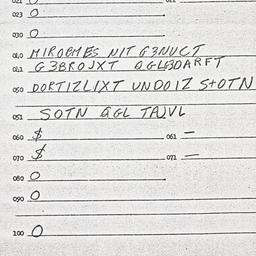 021 O
023 O
030 O
010 MIROBMES NIT G3NUCT
011 G3BROJXT QGLG3DARFT
050 DORTIZLIXT UNDOIZ STOTN
051 SOTN QGL TAJVL
060 $ 061 —
070 $ 071 —
080 O
090 O
100 O